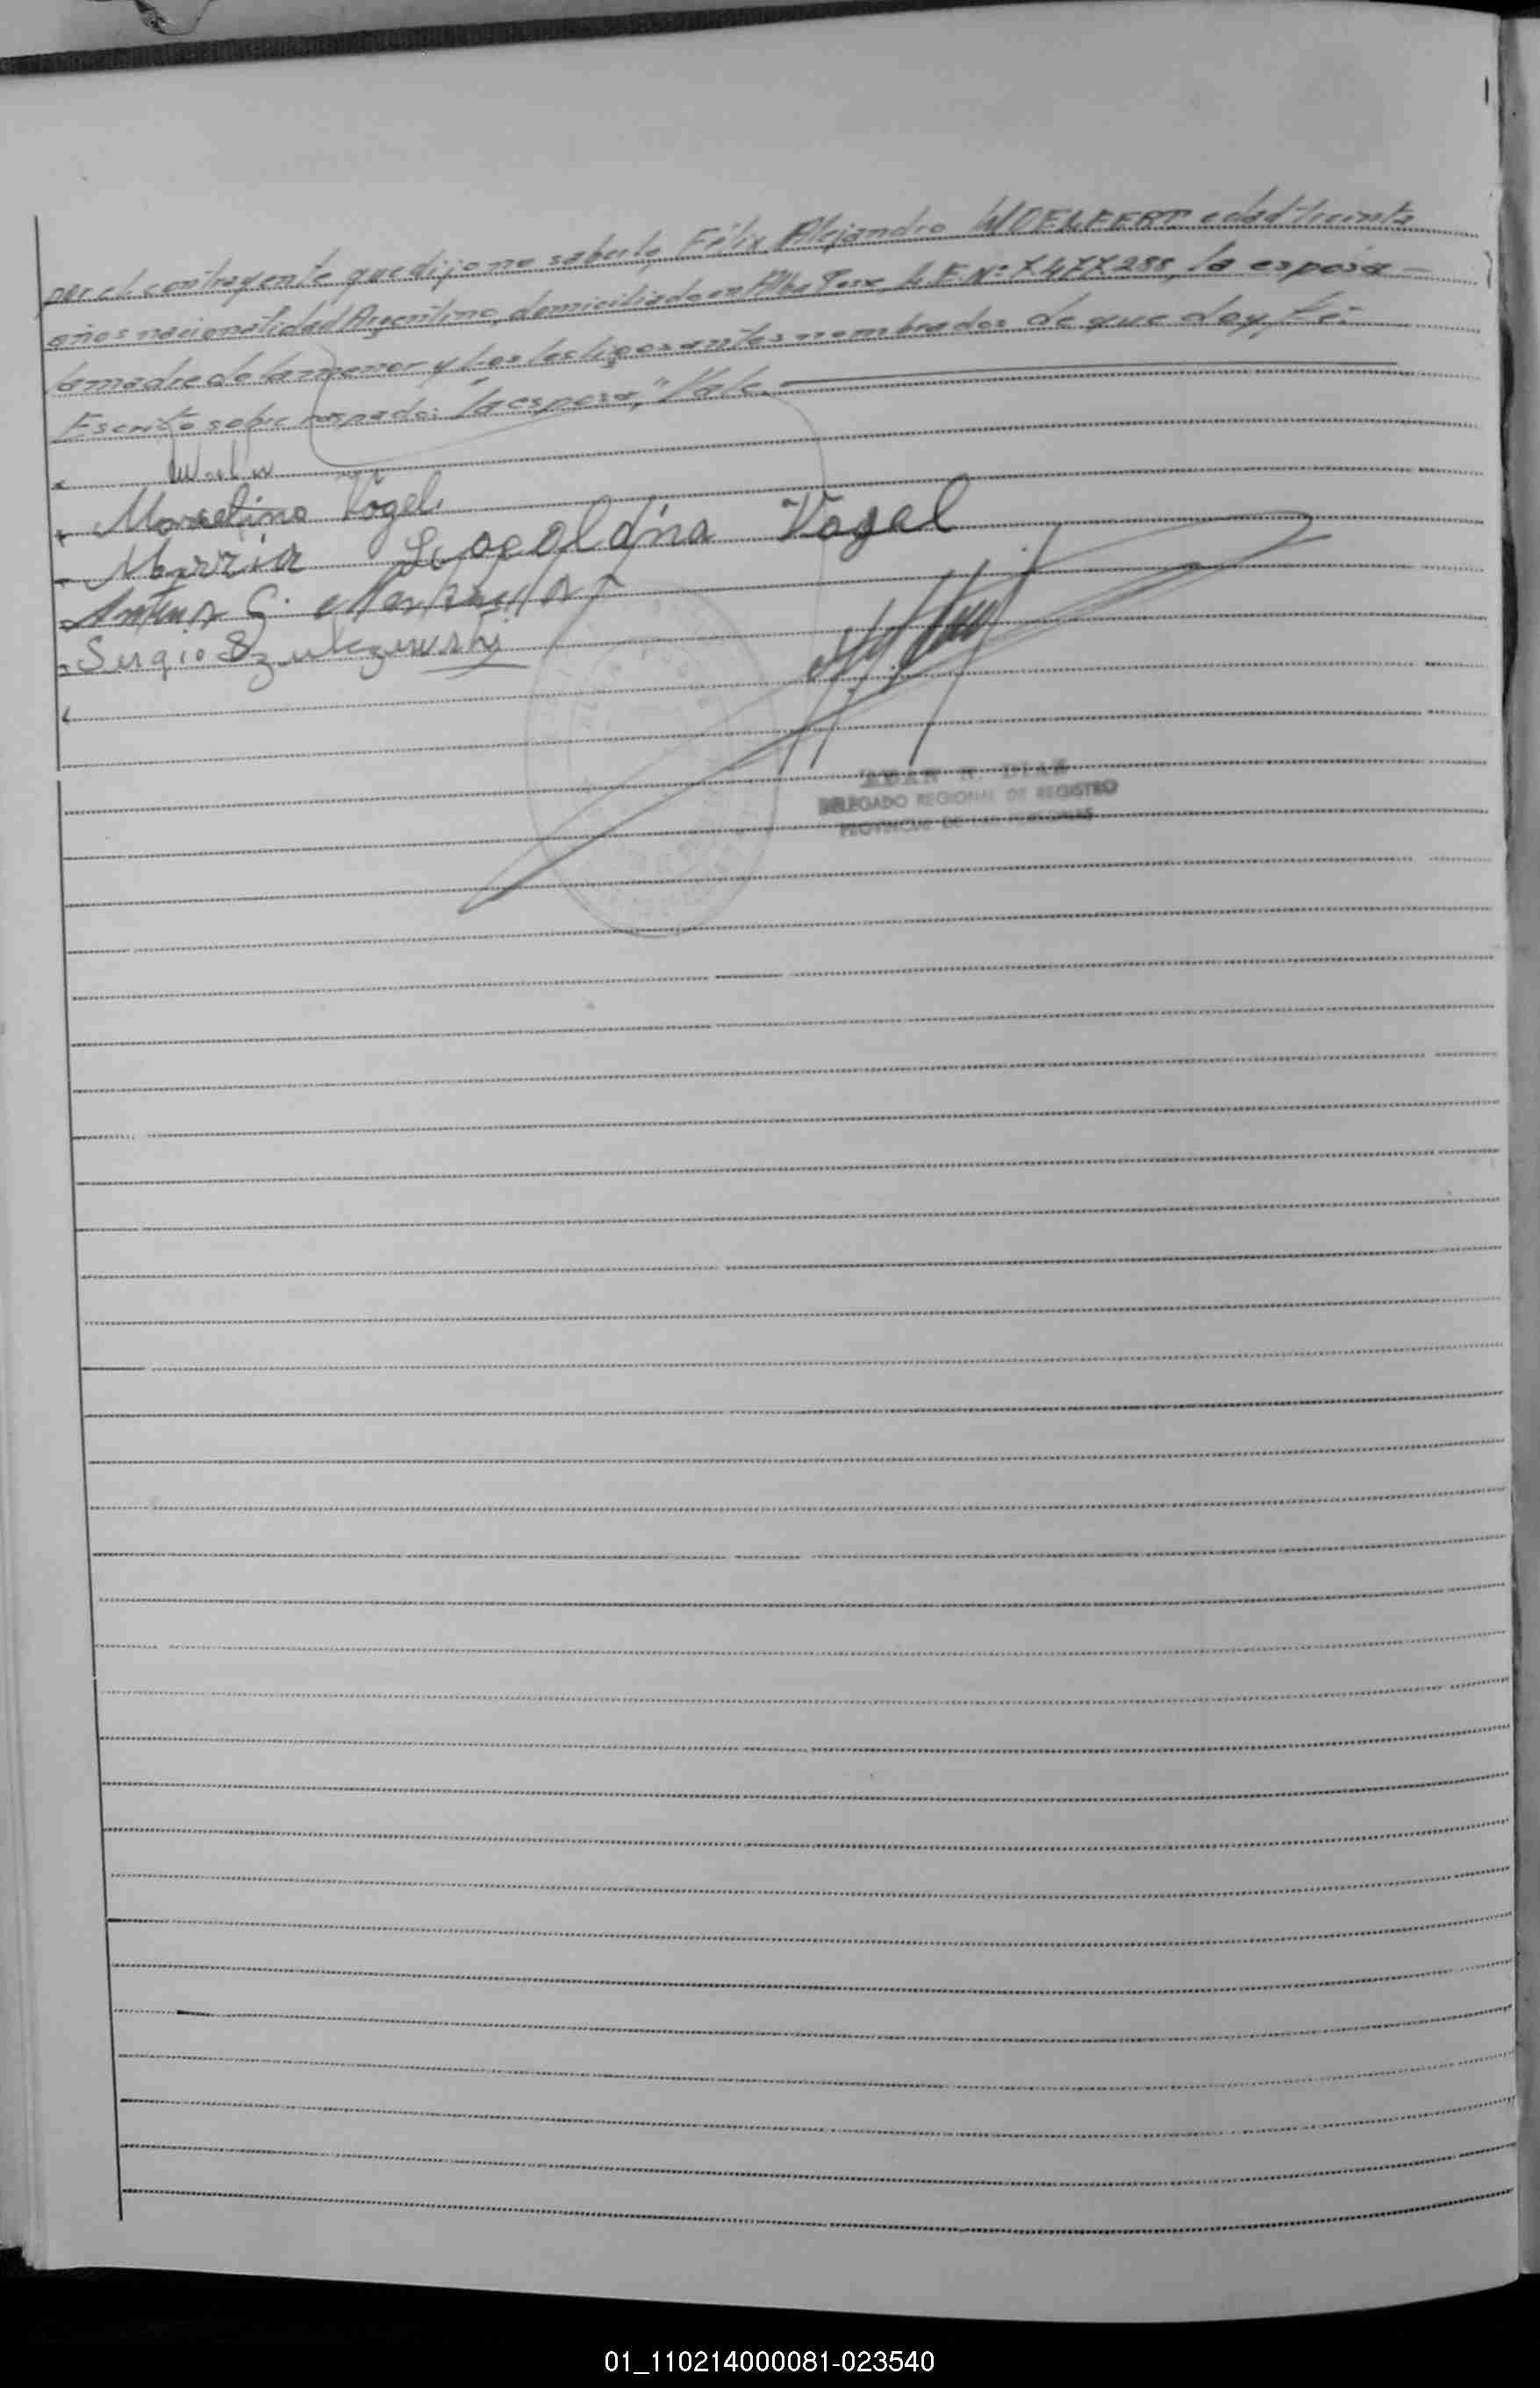 por el contrayente que dijo no saberlo, Félix Alejandro WOELFERT edad treinta
años nacionalidad Argentino, domiciliado en Alba Posse, L.E.Nº 7.477.288, la esposa -
la madre de la menor y los testigos antes nombrados de que doy fé.
Escrito sobre raspado: "la esposa," Vale.
Marcelina Vogel
Marzia Leopoldina Vogel
Antonio G.
Sergio Szulezewski
JUAN R. DIAS
DELEGADO REGIONAL DE REGISTRO
PROVINCIAL DE LAS PERSONAS
01_110214000081-023540